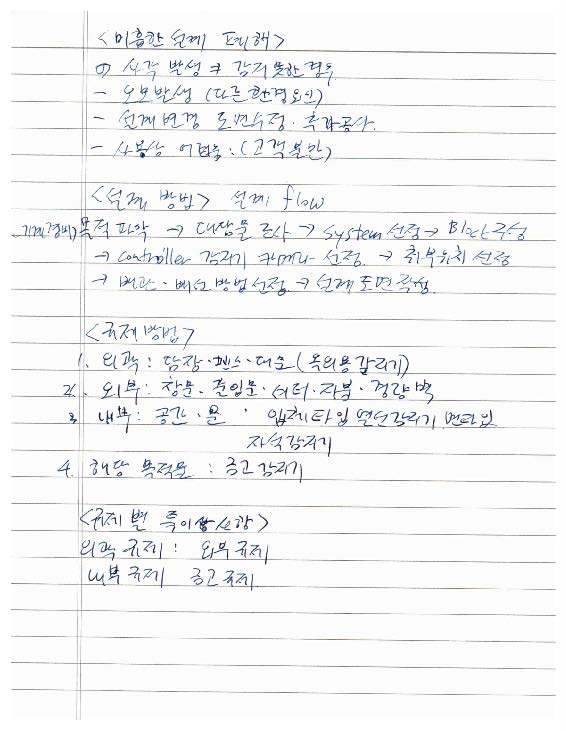 <미흡한 설계 폐해>
① 사각 발생 ≠ 감지 못한 경우
- 오보발생 (다른 환경요인)
- 설계변경 도면수정·추가공사.
- 사용상 어려움·(고객불만)
<설계 방법> 설계 flow
기계경비) 목적 파악 → 대상물 조사 → System 선정 → Block 구성
→ controller 감지기 카메라 선정. → 취부위치 선정
→ 배관·배선 방법 선정 → 설계도면 작성.
<규제방법>
1. 외곽: 담장·펜스·대문 (옥외용 감지기)
2. 외부: 창문·출입문·셔터·지붕·경량벽
3 내부: 공간·문· 입체타입 열선감지기 면타입
자석감지기
4. 해당 목적물 : 금고감지기
<규제별 특이사항>
외곽 규제: 외부규제
내부규제 금고규제.